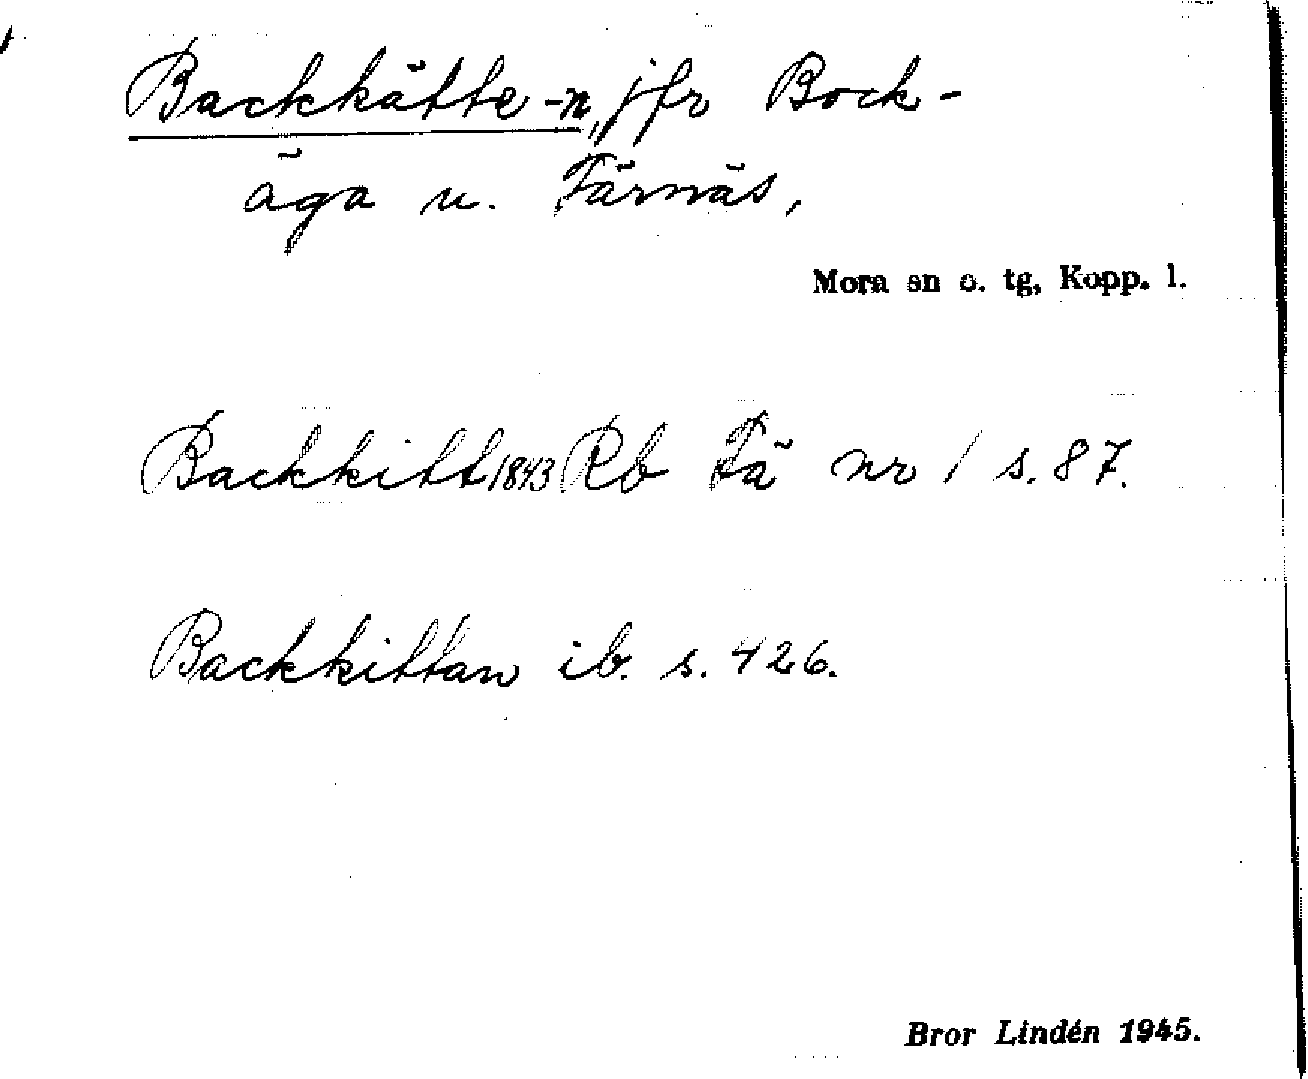 Backkätte -n, jfr Bock-
äga u. Färnäs,
Mora sn o. tg, Kopp. l.
Backkitt 1843 Rb Fä nr 1 s. 87.
Backkittan ib. s. 426.
Bror Lindén 1945.